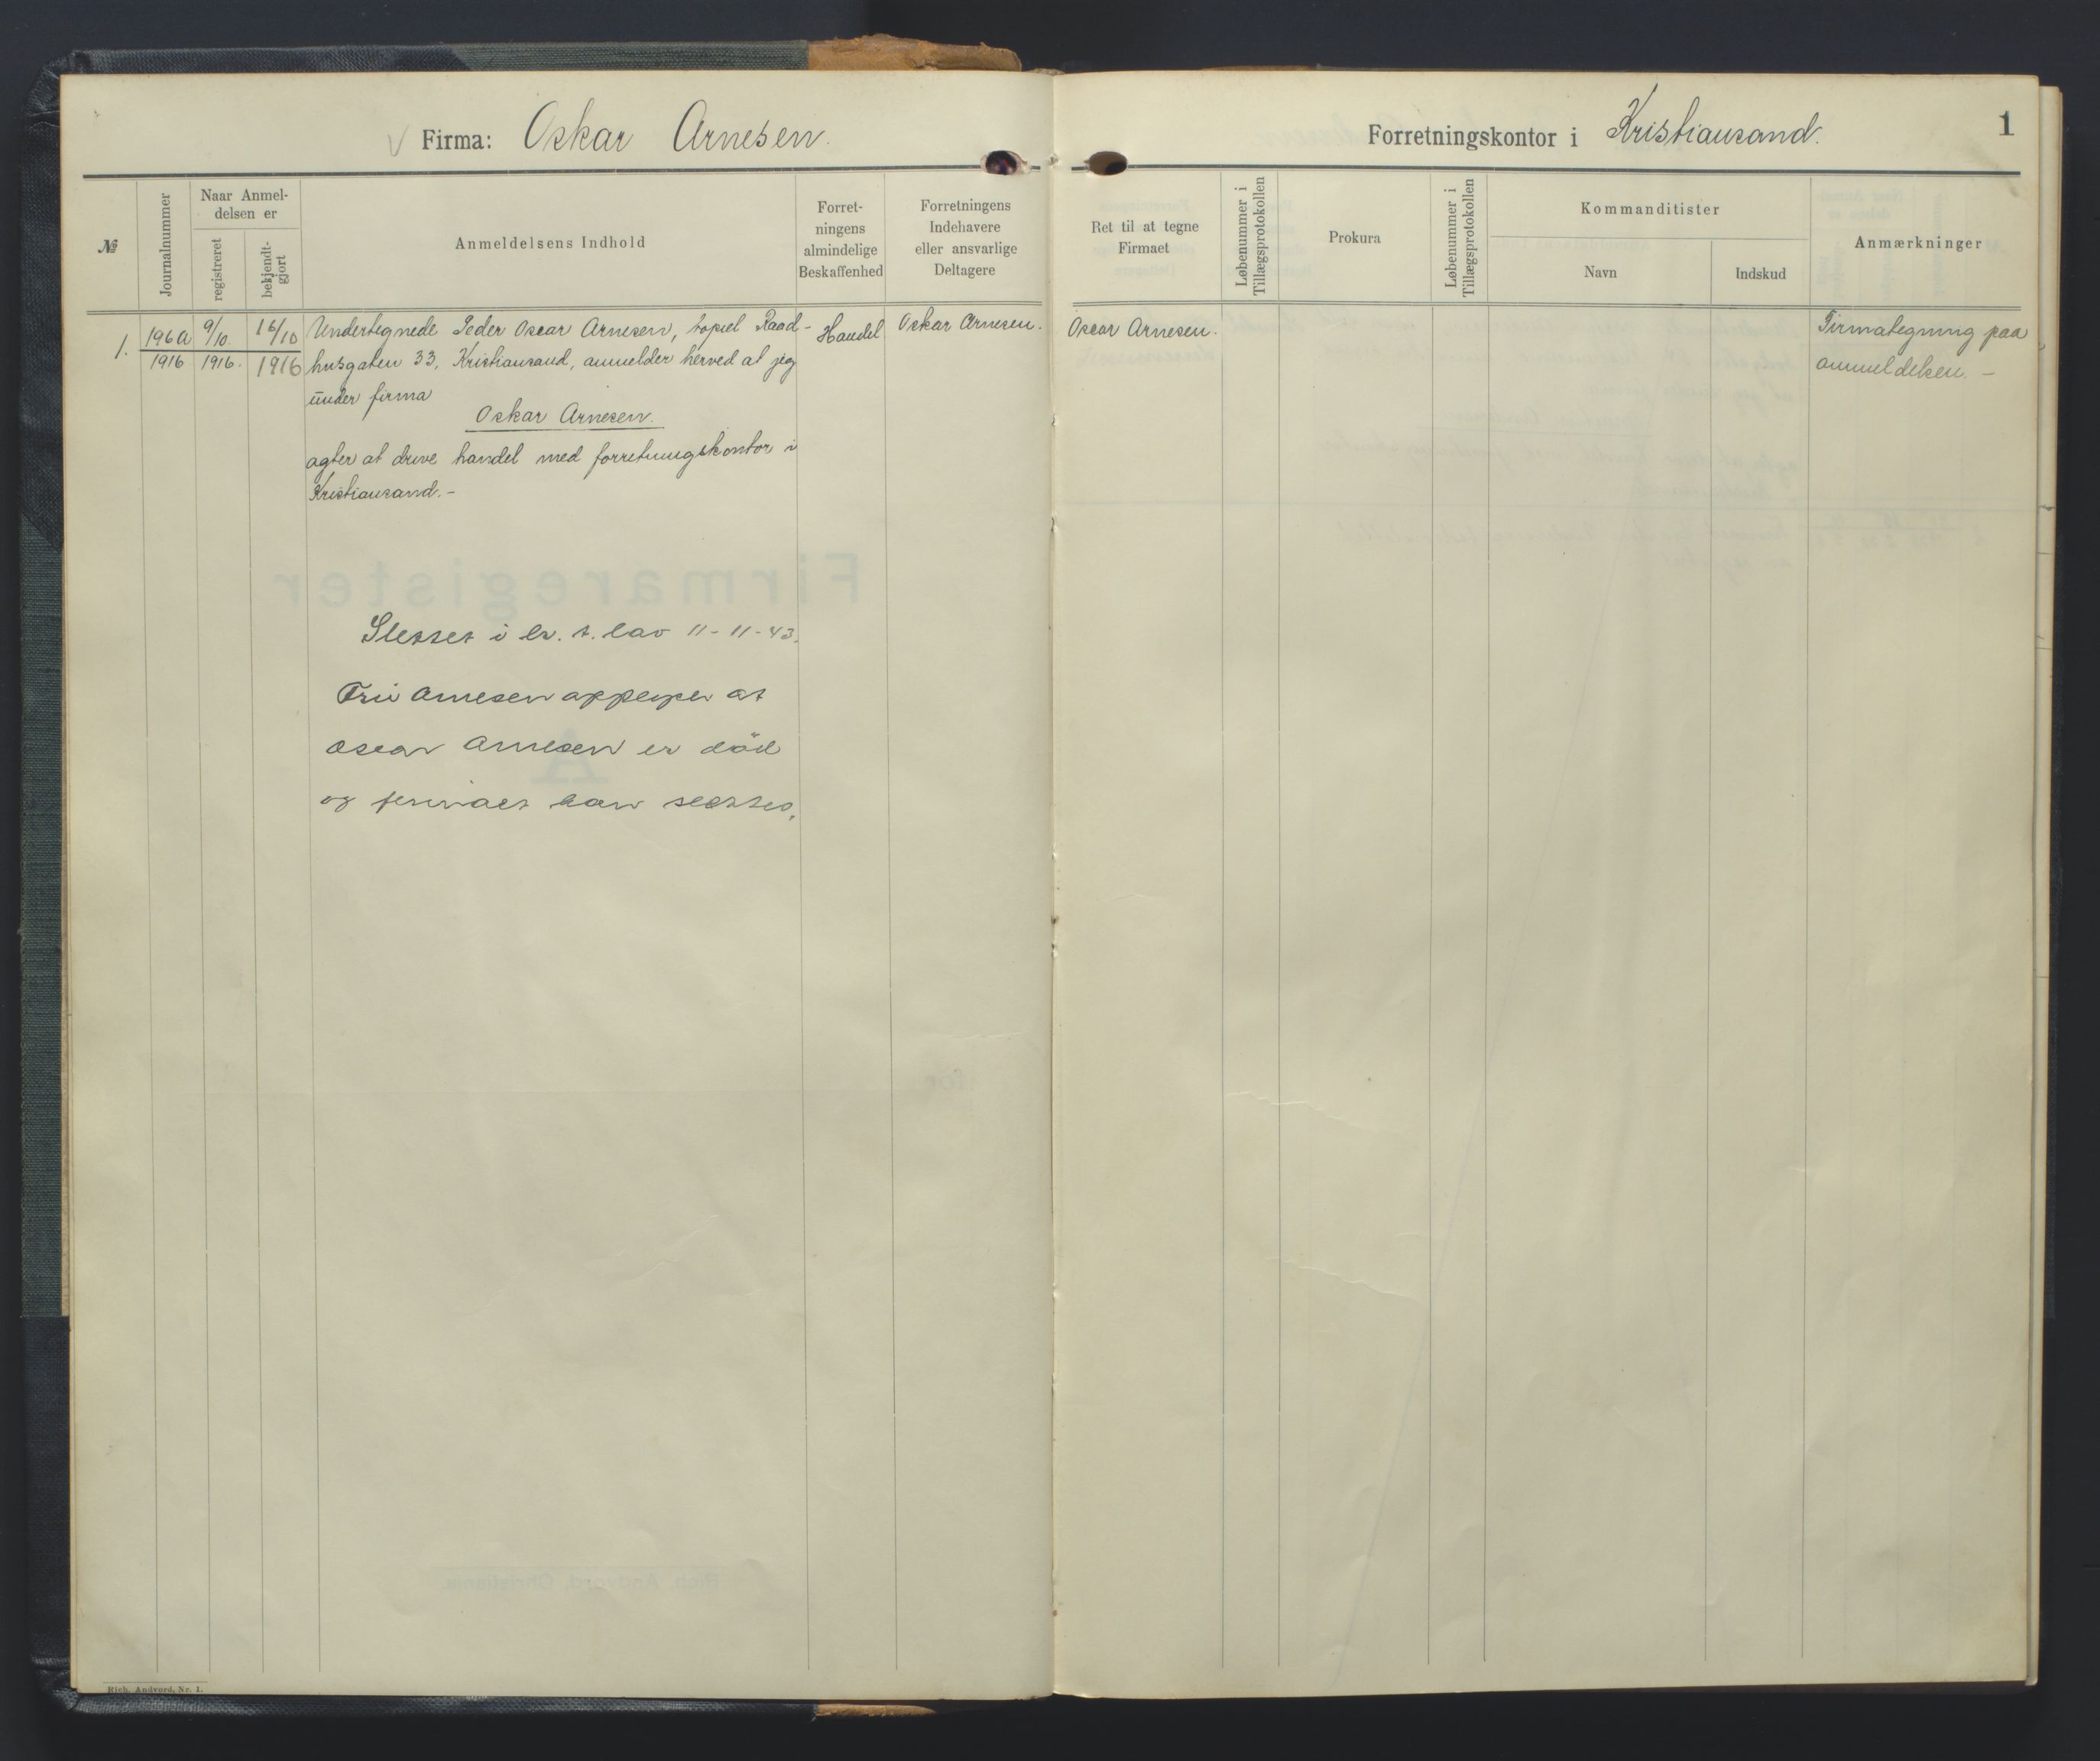 Firma: Oskar Arnesen.
Forretningskontor i Kristiansand.
1
№
Journalnummer
Naar Anmel-
delsen er
registreret
bekjendt-
gjort
Anmeldelsens Indhold
Forret-
ningens
almindelige
Beskaffenhed
Forretningens
Indehavere
eller ansvarlige
Deltagere
Ret til at tegne
Firmaet
Løbenummer i
Tillægsprotokollen
Prokura
Løbenummer i
Tillægsprotokollen
Kommanditister
Navn
Indskud
Anmærkninger
1.
196a
1916
9/10.
1916.
16/10
1916
Undertegnede Peder Oscar Arnesen, bopæl Raad-
husgaten 33, Kristiansand, anmelder herved at jeg
under firma
Oskar Arnesen.
agter at drive handel med forretningskontor i
Kristiansand.-
Handel
Oskar Arnesen.
Oscar Arnesen.
Firmategning paa
anmeldelsen. -
Slettet i h. t. lov 11-11-43.
Fru Arnesen oppgir at
Oscar Arnesen er död
og firmaet kan slettes.
Rich. Andvord, Nr. 1.